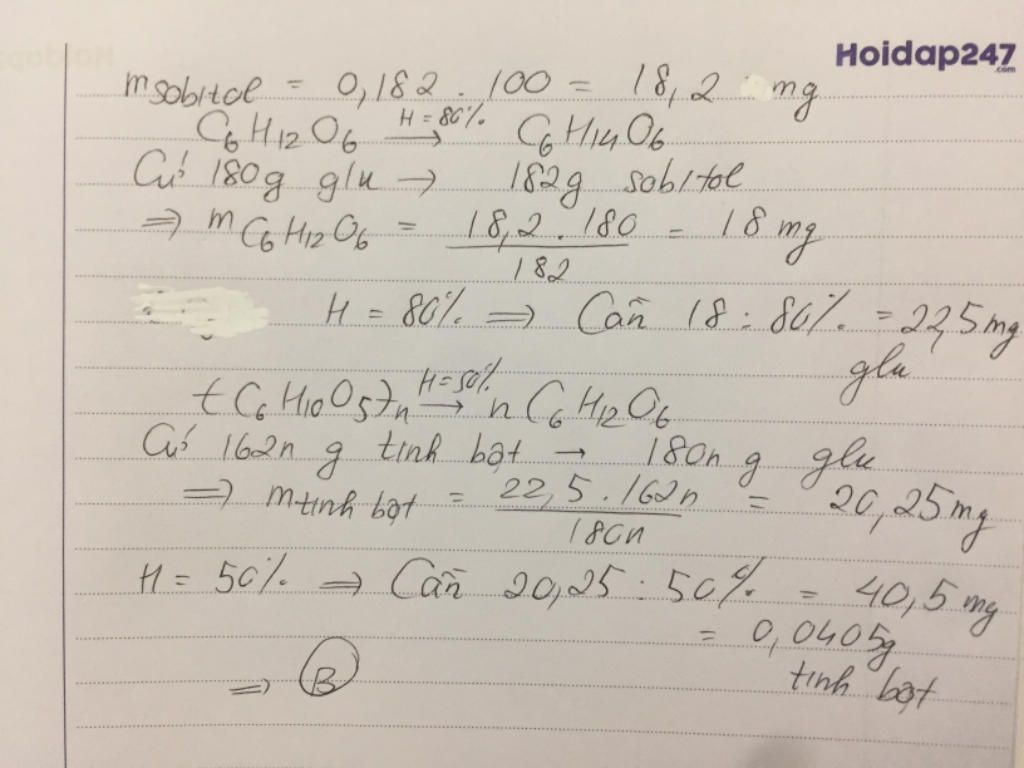 Hoidap247
.com
m sobitol = 0,182 . 100 = 18,2 mg
C6H12O6 H = 80% → C6H14O6
Cứ 180g glu → 182g sobitol
=> m C6H12O6 = 18,2 . 180 / 182 = 18 mg
H = 80% => Cần 18 : 80% = 22,5 mg
glu
(C6H10O5)n H = 50% → n C6H12O6
Cứ 162n g tinh bột → 180n g glu
=> m tinh bột = 22,5 . 162n / 180n = 20,25 mg
H = 50% => Cần 20,25 : 50% = 40,5 mg
= 0,0405g
tinh bột
=> B